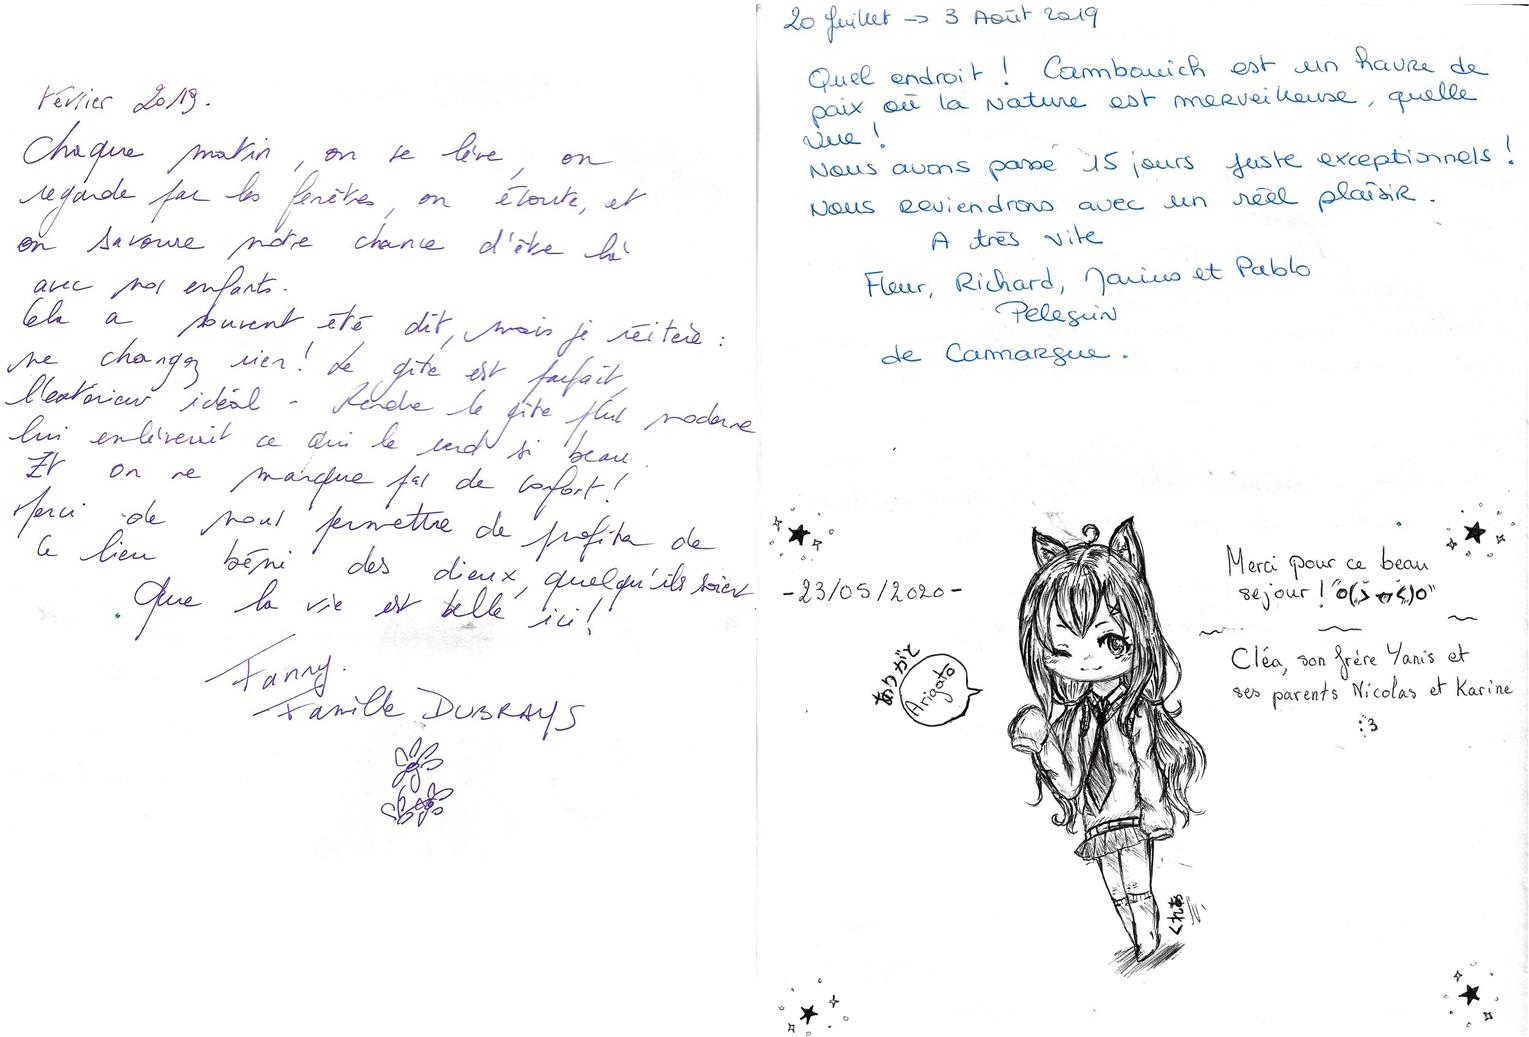 Février 2019.
Chaque matin, on se lève, on
regarde par les fenêtres, on écoute, et
on savoure notre chance d'être là
avec nos enfants.
Cela a souvent été dit, mais je réitère :
ne changez rien ! Le gîte est parfait,
l'extérieur idéal - Rendre le gîte plus moderne
lui enlèverait ce qui le rend si beau.
Et on ne manque pas de confort !
Merci de nous permettre de profiter de
ce lieu béni des dieux, quelqu'ils soient
Que la vie est belle ici !
Fanny.
Famille DUBRAYS
20 Juillet -> 3 Août 2019
Quel endroit ! Cambouich est un havre de
paix où la Nature est merveilleuse, quelle
vue !
Nous avons passé 15 jours juste exceptionnels !
Nous reviendrons avec un réel plaisir.
A très vite
Fleur, Richard, Marius et Pablo
Pelegrin
de Camargue.
-23/05/2020-
ありがと
Arigato
Merci pour ce beau
sejour !
Cléa, son frère Yanis et
ses parents Nicolas et Karine
:3
くれあ